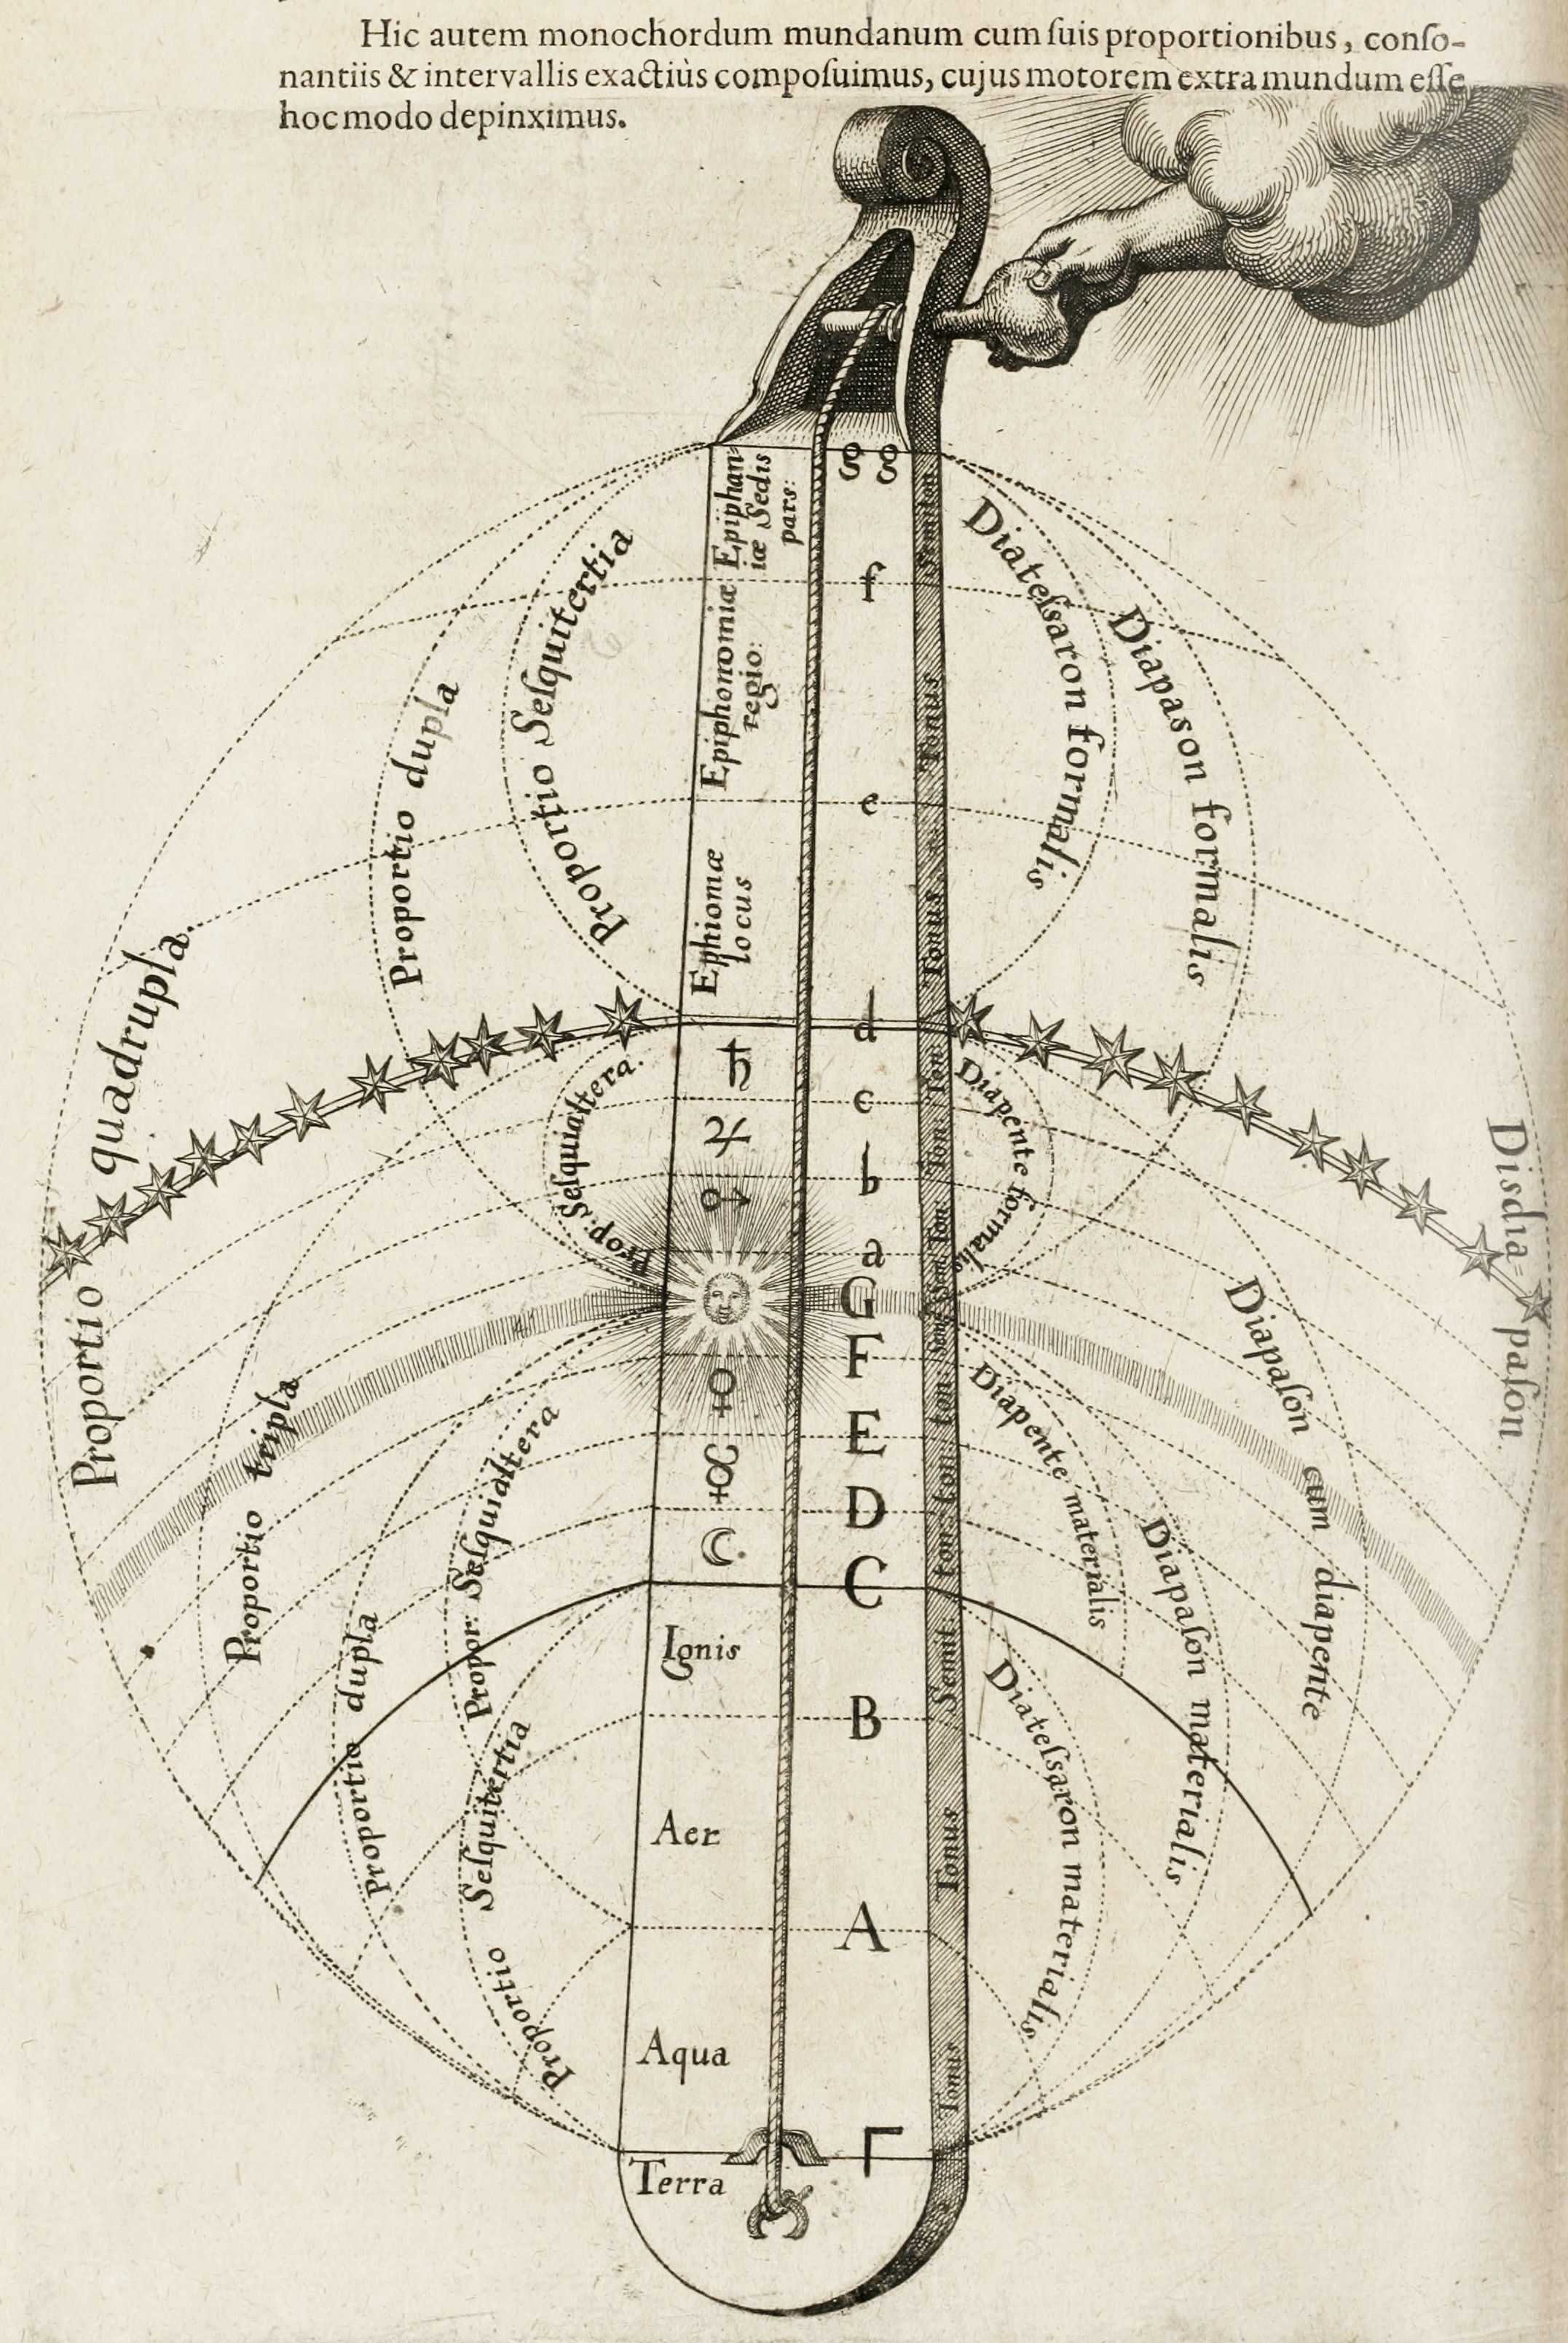 Hic autem monochordum mundanum cum ſuis proportionibus, conſo-
nantiis & intervallis exactiùs compoſuimus, cujus motorem extra mundum eſſe
hoc modo depinximus.
gg
Epiphan-
iæ Sedis
pars:
f
Epiphonomiæ
regio:
e
Ephiomæ
locus
d
♄
c
♃
b
♂
a
G
F
♀
E
☿
D
☾
C
Ignis
B
Aer
A
Aqua
Γ
Terra
Proportio quadrupla.
Proportio dupla
Proportio Seſquitertia
Prop: Seſquialtera.
Proportio tripla
Proportio dupla
Propor: Seſquialtera
Proportio Seſquitertia
Semiton
Tonus
Tonus
Ton
Ton
Ton
Ton
Ton
Ton
Semi:
Tonus
Tonus
Diateſsaron formalis
Diapason formalis
Diapente formalis
Disdia=paſon
Diapaſon cum diapente
Diapente materialis
Diapaſon materialis
Diateſsaron materialis